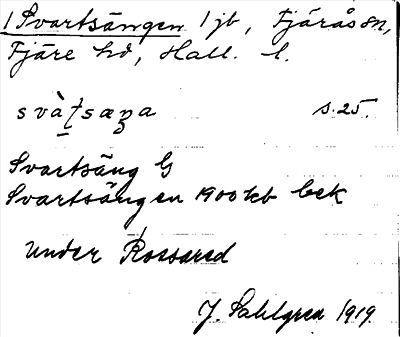 / Svartsängen 1 jb, Fjärås sn,
Fjäre hd, Hall. l.
svàtsæŋa s. 25.
Svartsäng G
Svartsängen 1900 kb bek
under Rossared
J. Sahlgren 1919